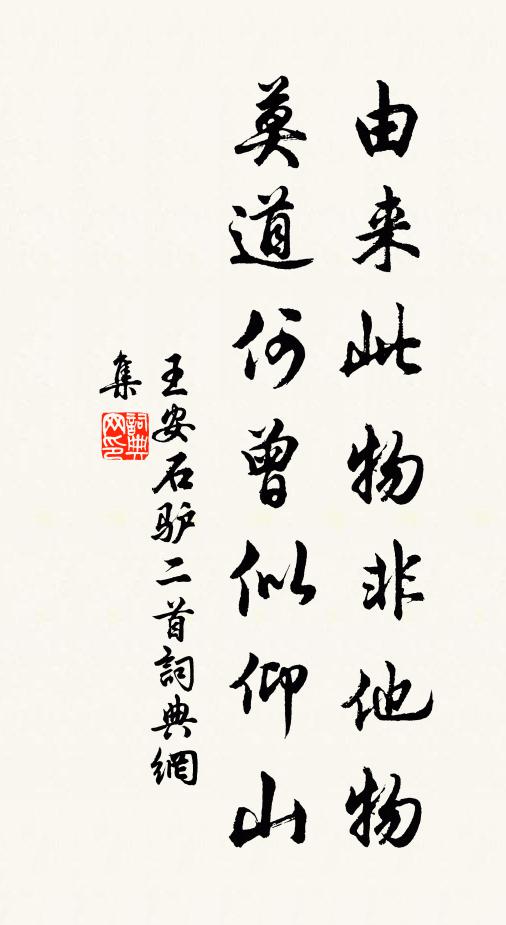 由来此物非他物
莫道何曾似仰山
王安石驴二首詞典網
集
詞典
网印